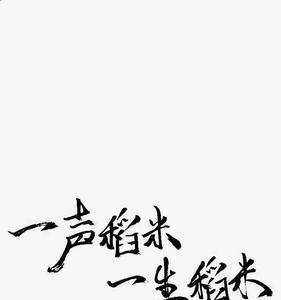 一声稻米
一生稻米